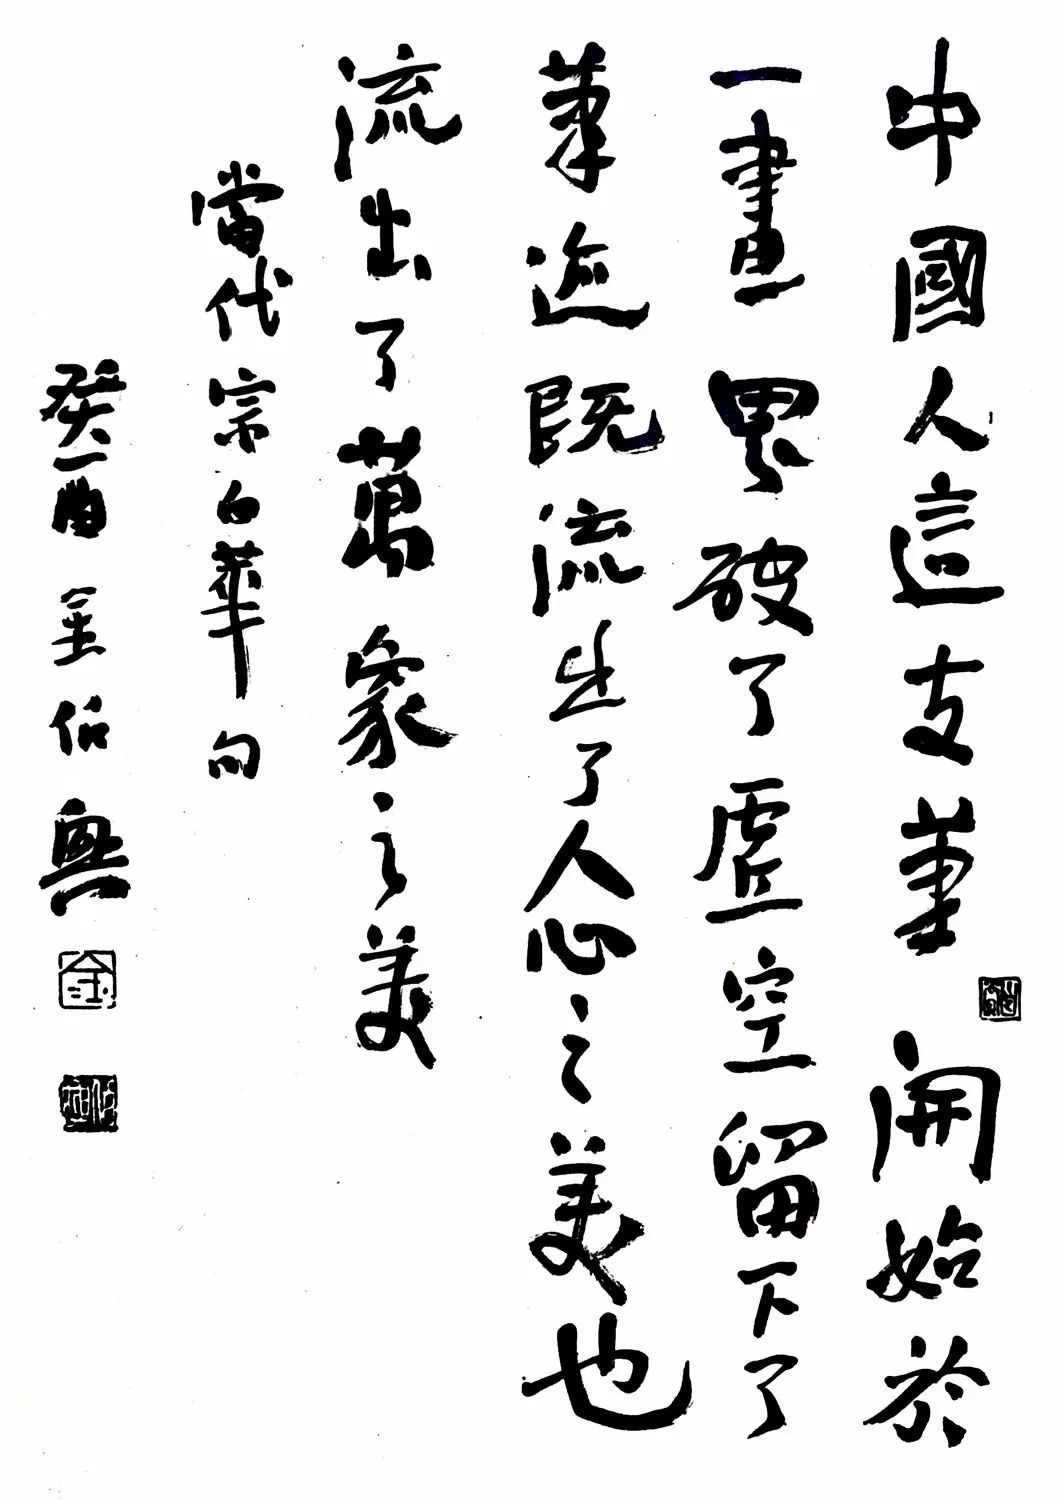 中國人這支筆開始於
一畫界破了虛空留下了
筆迹既流出了人心之美也
流出了萬象之美
當代宗白華句
癸酉金伯興
金